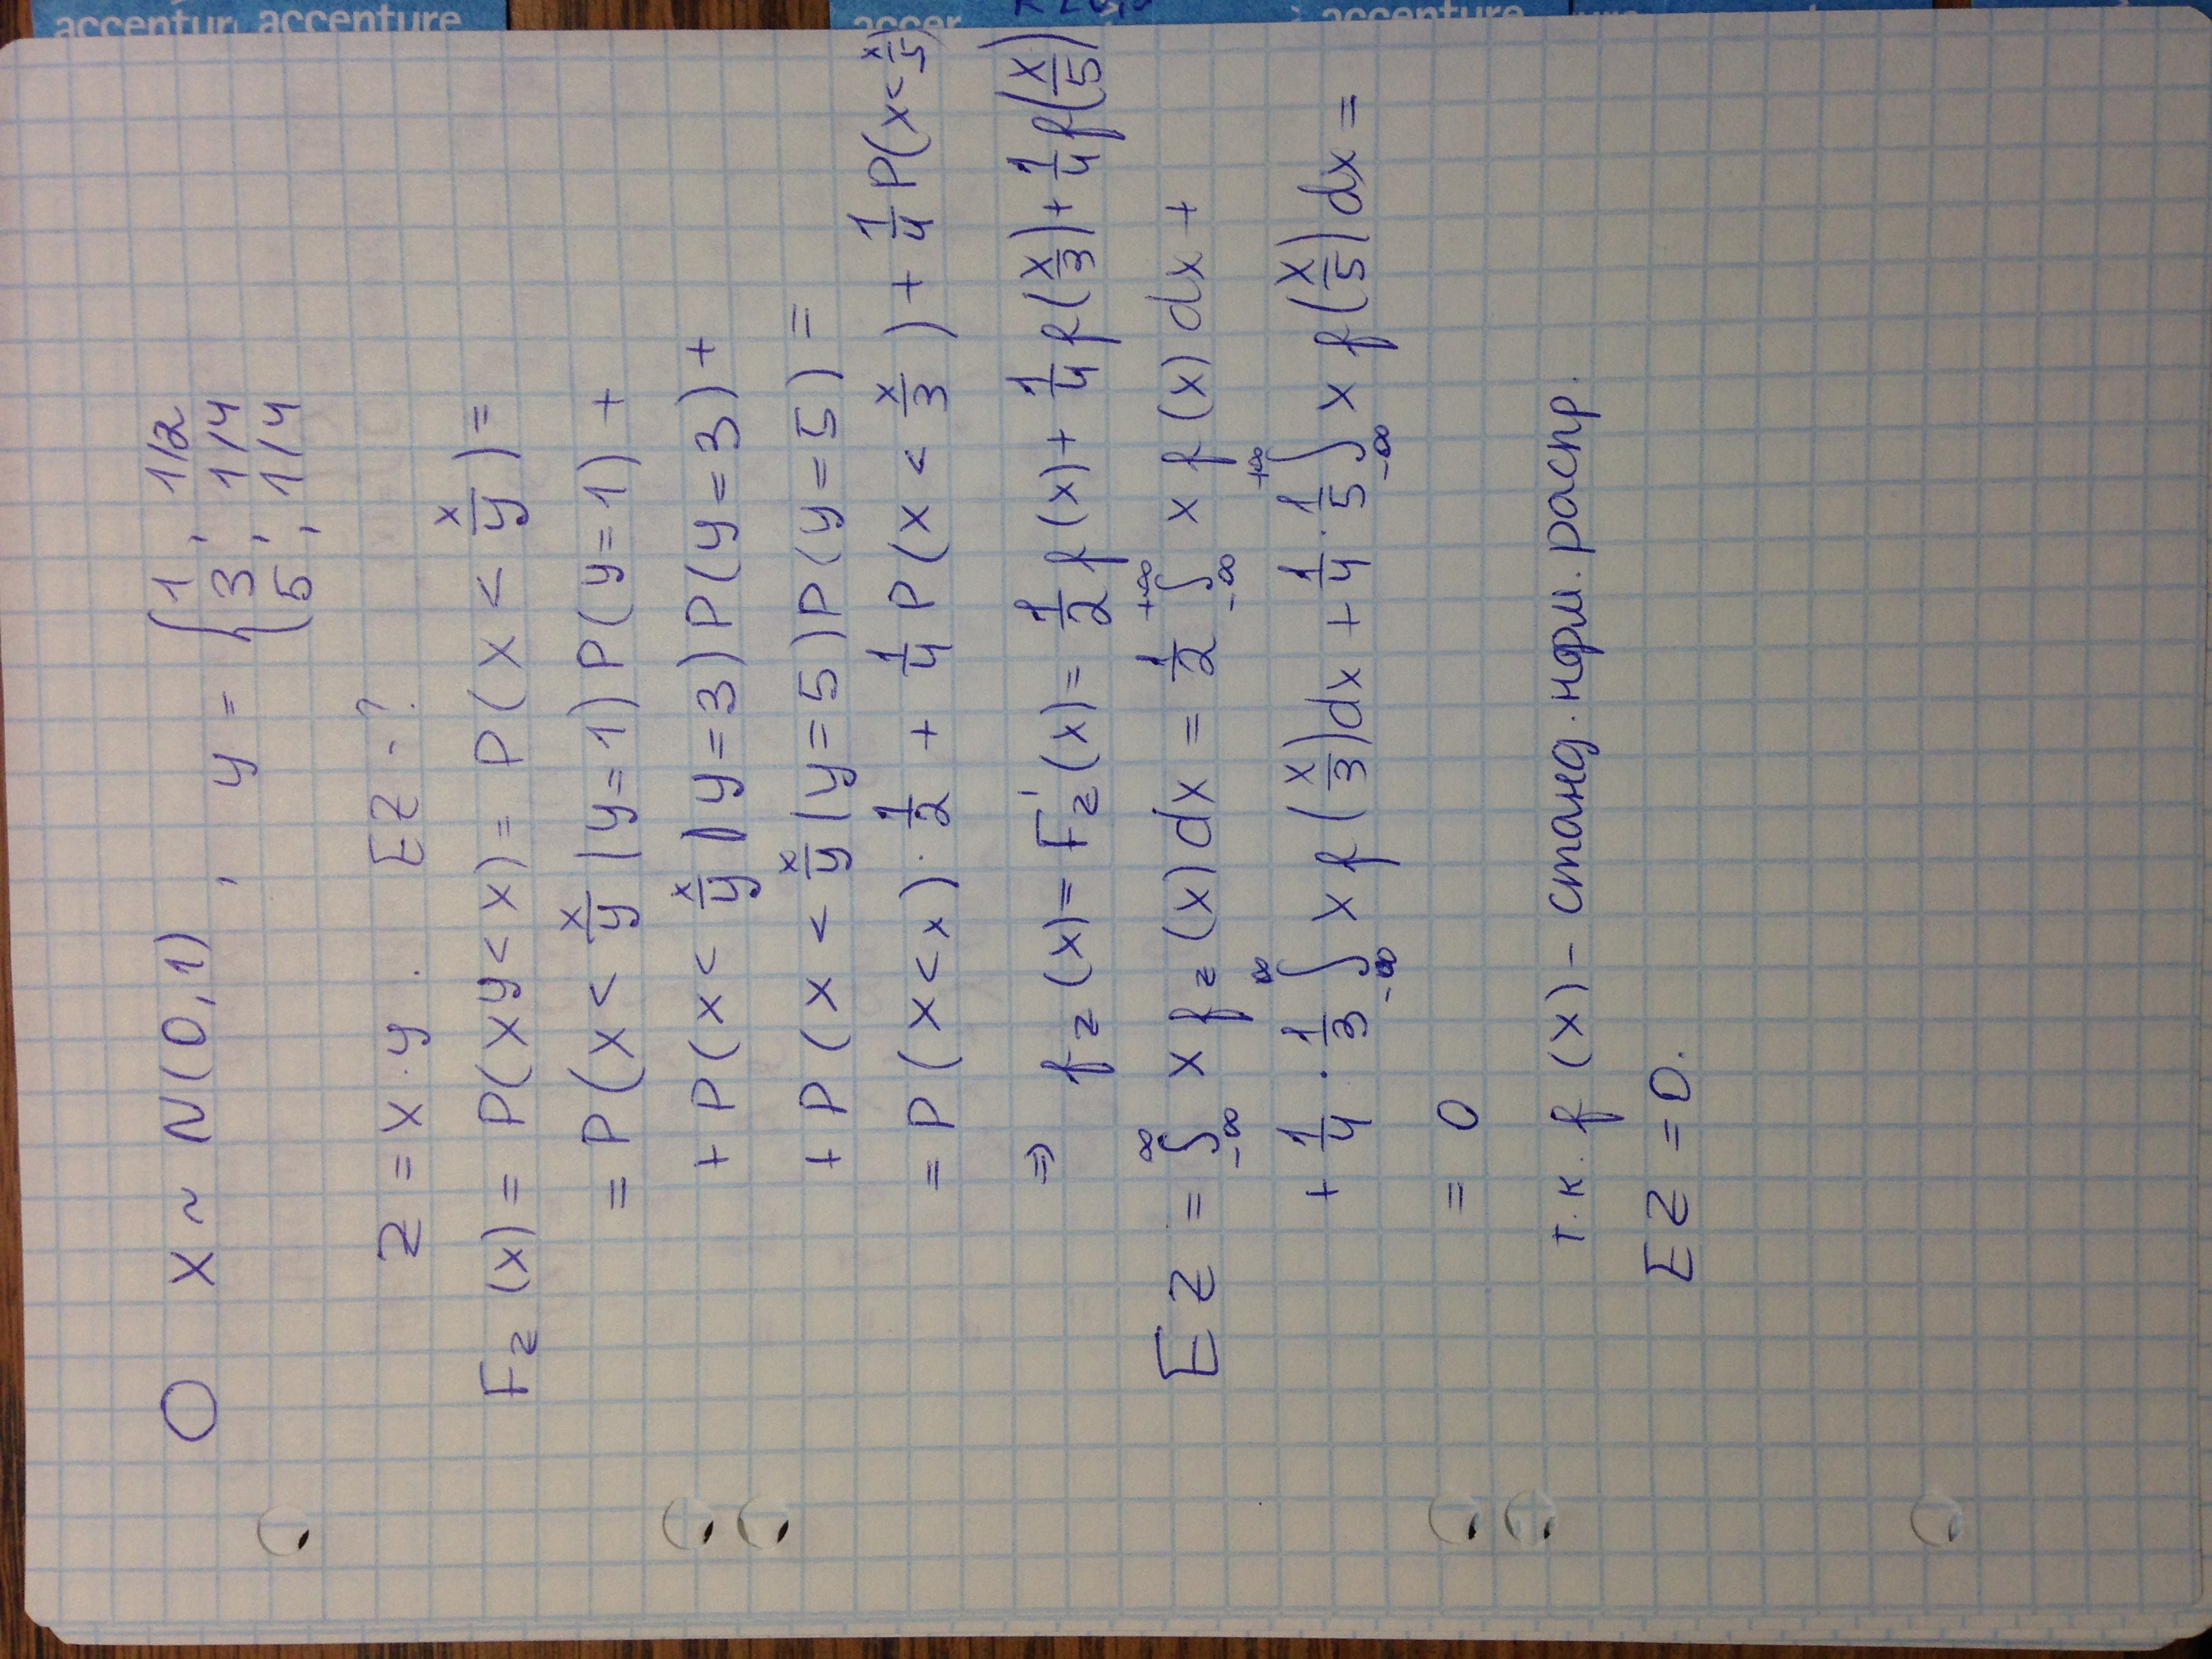 accenture accenture accen accenture
O X ~ N(0,1), y = { 1, 1/2
3, 1/4
5, 1/4
Z = X·y. EZ -?
F_Z(x) = P(xy < x) = P(x < x/y) =
= P(x < x/y | y=1) P(y=1) +
+ P(x < x/y | y=3) P(y=3) +
+ P(x < x/y | y=5) P(y=5) =
= P(x < x)·1/2 + 1/4 P(x < x/3) + 1/4 P(x < x/5)
⇒ f_Z(x) = F_Z'(x) = 1/2 f(x) + 1/4 f(x/3) + 1/4 f(x/5)
EZ = ∫_{-∞}^{∞} x f_Z(x) dx = 1/2 ∫_{-∞}^{+∞} x f(x) dx +
+ 1/4 · 1/3 ∫_{-∞}^{∞} x f(x/3) dx + 1/4 · 1/5 ∫_{-∞}^{+∞} x f(x/5) dx =
= 0
т.к. f(x) - станд. норм. распр.
EZ = 0.